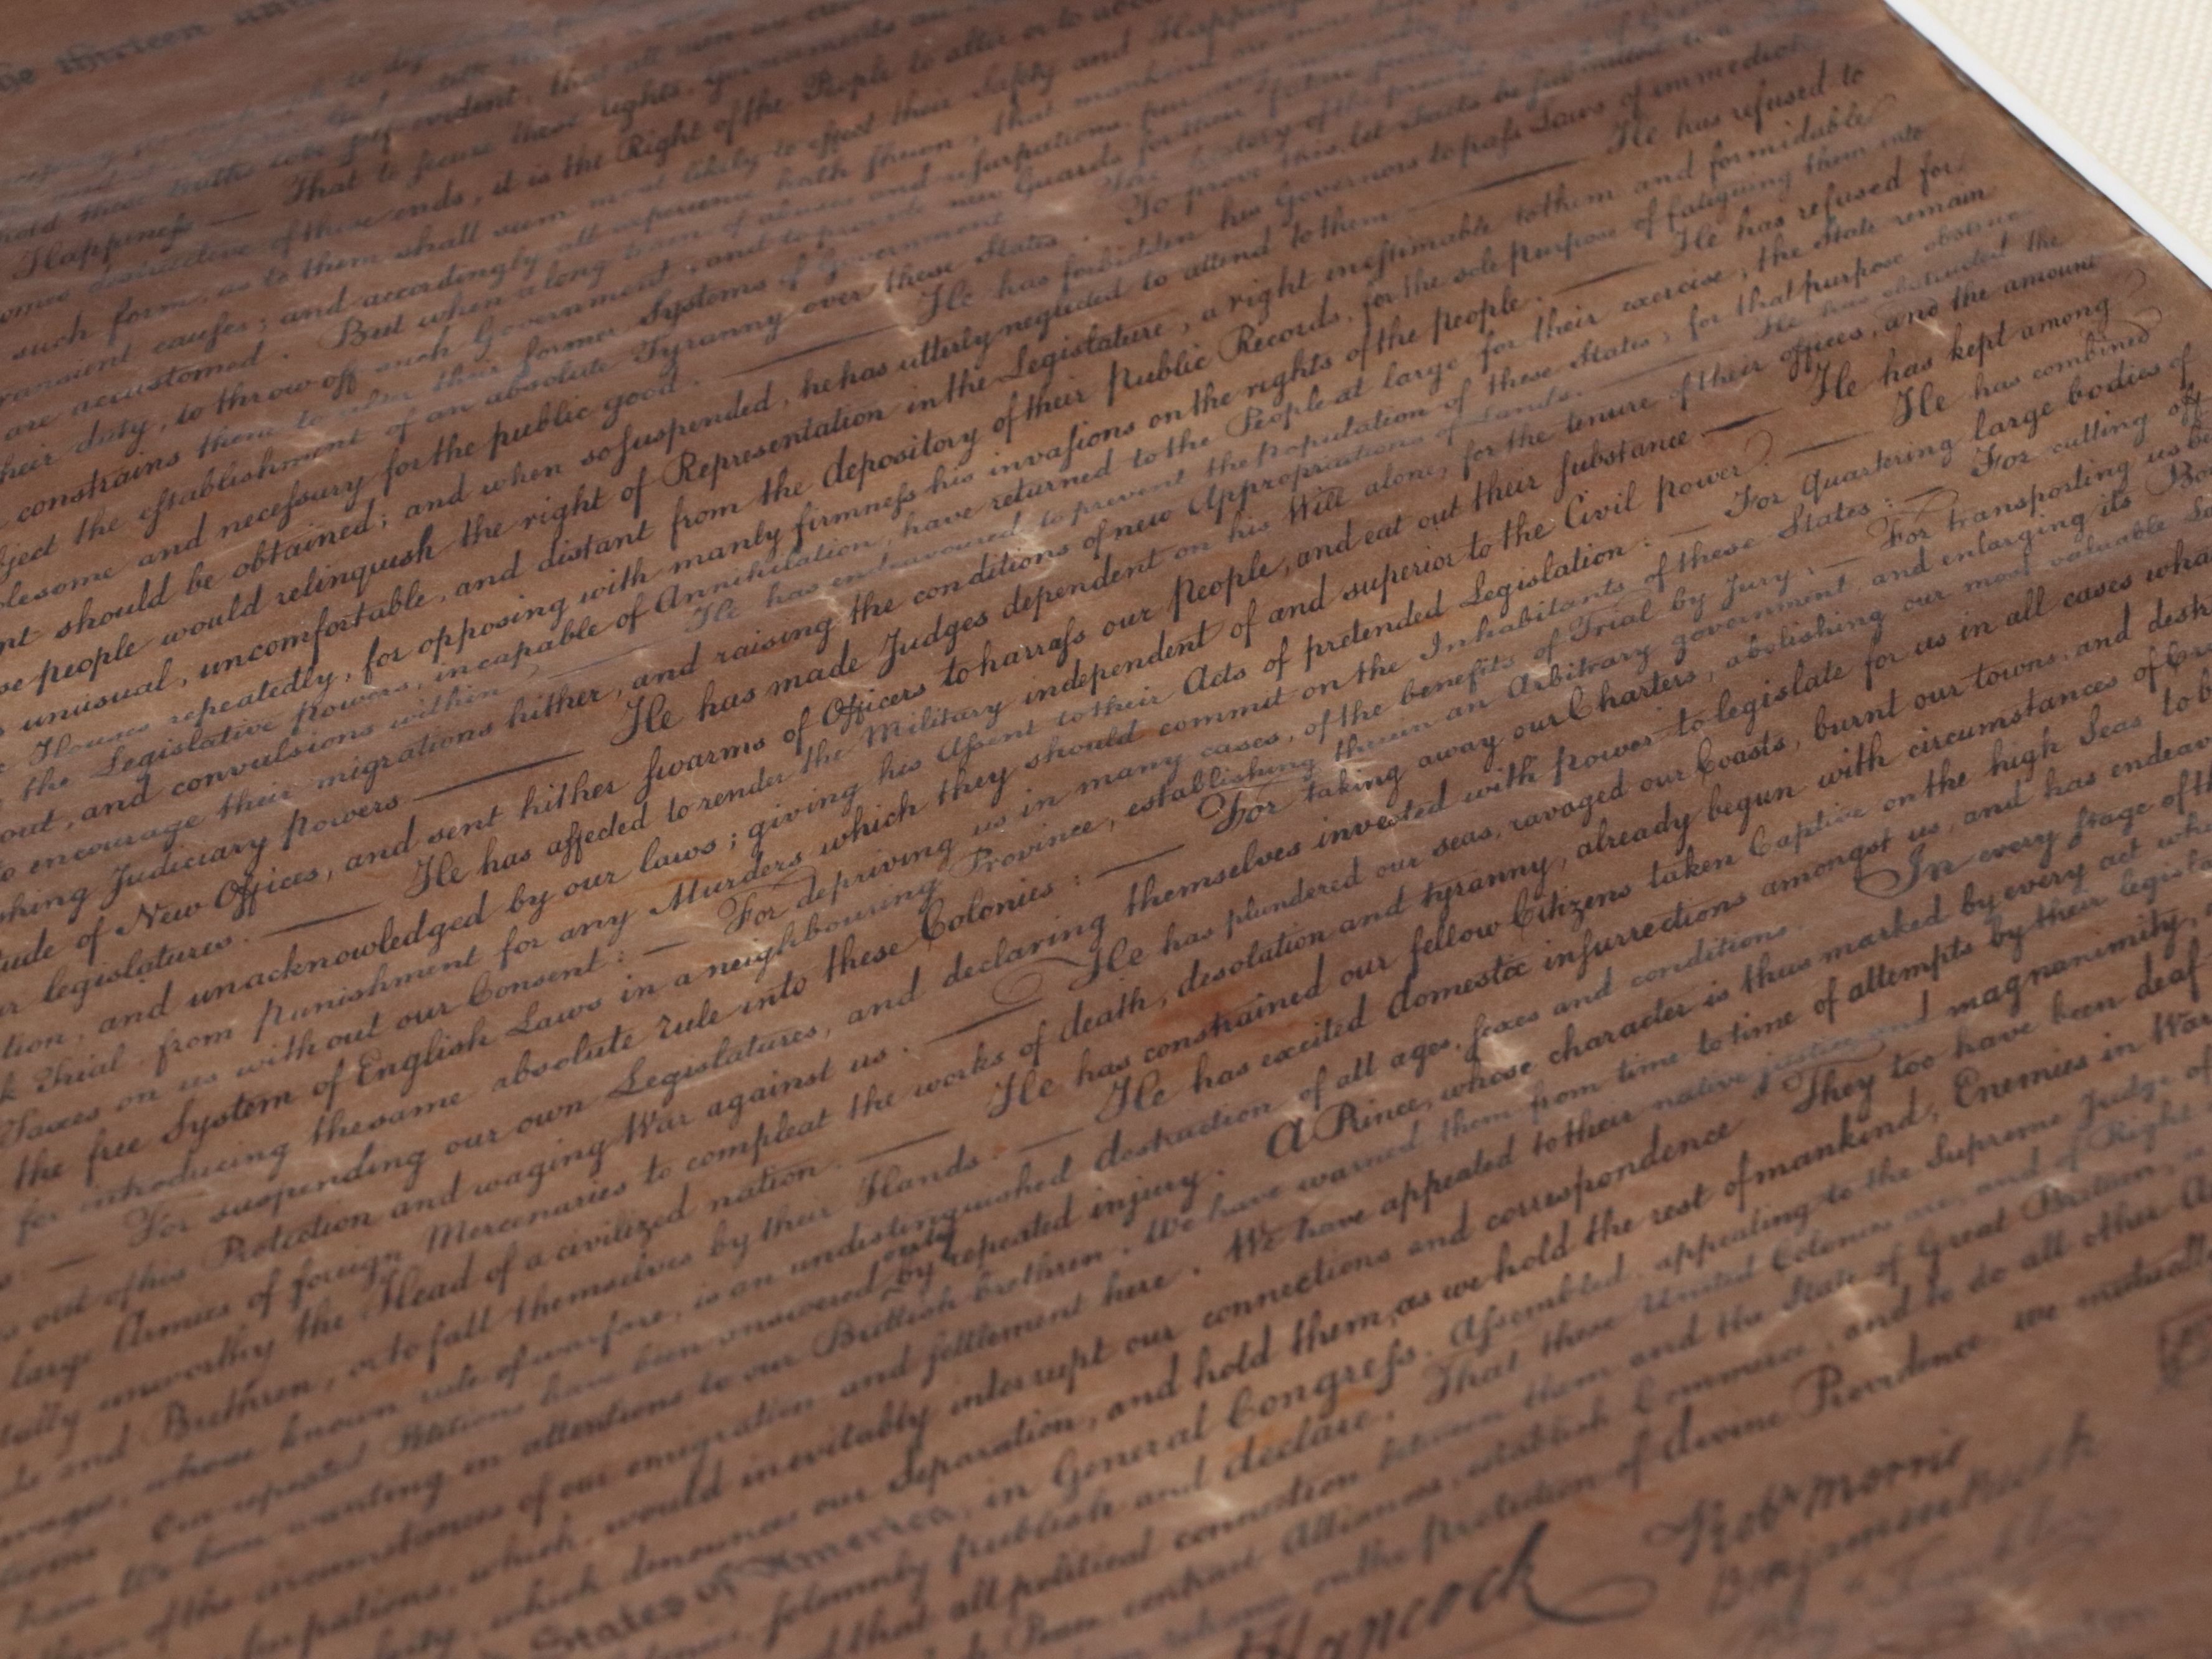 the thirteen
hold these truths to be self-evident, that all men are
Happiness — That to secure these rights, Governments are
destructive of these ends, it is the Right of the People to alter or to
such form, as to them shall seem most likely to effect their Safety and Happiness
transient causes; and accordingly all experience hath shewn, that mankind are more
are accustomed. But when a long train of abuses and usurpations, pursuing invariably
their duty, to throw off such Government, and to provide new Guards for their future security
constrains them to alter their former Systems of Government. The history of the present
ject the establishment of an absolute Tyranny over these States. To prove this, let Facts be submitted to a
lesome and necessary for the public good. — He has forbidden his Governors to pass Laws of immediate
nt should be obtained; and when so suspended, he has utterly neglected to attend to them. — He has refused to
se people would relinquish the right of Representation in the Legislature, a right inestimable to them and formidable
unusual, uncomfortable, and distant from the depository of their Public Records, for the sole purpose of fatiguing them into
Houses repeatedly, for opposing with manly firmness his invasions on the rights of the people. — He has refused for
the Legislative powers, incapable of Annihilation, have returned to the People at large for their exercise; the State remain
out, and convulsions within. — He has endeavoured to prevent the population of these States; for that purpose obstruc
to encourage their migrations hither, and raising the conditions of new Appropriations of Lands. — He has obstructed the
shing Judiciary powers. — He has made Judges dependent on his Will alone, for the tenure of their offices, and the amount
tude of New Offices, and sent hither swarms of Officers to harrass our people, and eat out their substance. — He has kept among
r legislatures. — He has affected to render the Military independent of and superior to the Civil power. — He has combined
tion, and unacknowledged by our laws; giving his Assent to their Acts of pretended Legislation: — For Quartering large bodies of
k Trial, from punishment for any Murders which they should commit on the Inhabitants of these States: — For cutting off
Taxes on us without our Consent: — For depriving us in many cases, of the benefits of Trial by Jury: — For transporting us be
the free System of English Laws in a neighbouring Province, establishing therein an Arbitrary government, and enlarging its Bou
for introducing the same absolute rule into these Colonies: — For taking away our Charters, abolishing our most valuable La
— For suspending our own Legislatures, and declaring themselves invested with power to legislate for us in all cases what
out of his Protection and waging War against us. — He has plundered our seas, ravaged our Coasts, burnt our towns, and destr
large Armies of foreign Mercenaries to compleat the works of death, desolation and tyranny, already begun with circumstances of Cru
tally unworthy the Head of a civilized nation. — He has constrained our fellow Citizens taken Captive on the high Seas to b
ds and Brethren, or to fall themselves by their Hands. — He has excited domestic insurrections amongst us, and has endeav
avages, whose known rule of warfare, is an undistinguished destruction of all ages, sexes and conditions. In every stage of th
terms: Our repeated Petitions have been answered only by repeated injury. A Prince, whose character is thus marked by every act whi
have We been wanting in attentions to our Brittish brethren. We have warned them from time to time of attempts by their legisla
them of the circumstances of our emigration and settlement here. We have appealed to their native justice and magnanimity,
surpations, which, would inevitably interrupt our connections and correspondence. They too have been deaf
ssity, which denounces our Separation, and hold them, as we hold the rest of mankind, Enemies in War
States of America, in General Congress, Assembled, appealing to the Supreme Judge of
solemnly publish and declare, That these United Colonies are, and of Right
that all political connection between them and the State of Great Britain, is
Peace contract Alliances, establish Commerce, and to do all other A
reliance on the protection of divine Providence, we mutuall
Hancock
Robt Morris
Benjamin Rush